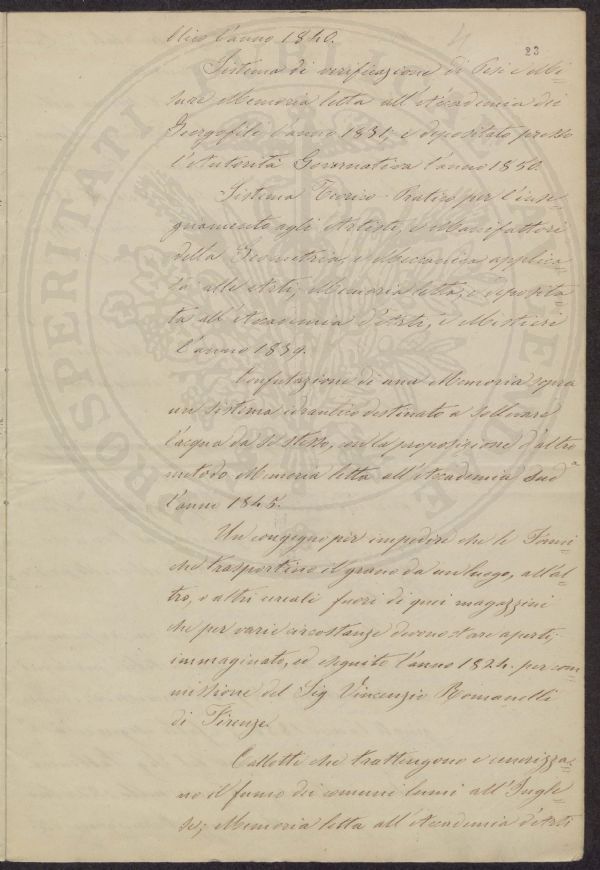 blico l'anno 1840.
23
Sistema di verificazione di Pesi e Mi=
sure Memoria letta all'Accademia dei
Georgofili l'anno 1831, e depositato presso
l'Autorità Governativa l'anno 1850.
Sistema Teorico-Pratico per l'inse=
gnamento agli Artisti, e Manifattori
della Geometria, e Meccanica applica=
ta alle Arti; Memoria letta, e deposita=
ta all'Accademia d'Arti, e Mestieri
l'anno 1839.
Confutazione di una Memoria sopra
un sistema idraulico destinato a sollevare
l'acqua da se stesso, colla proposizione d'altro
metodo Memoria letta all'Accademia Sud.a
l'anno 1845.
Un congegno per impedire che le Formi=
che trasportino il grano da un luogo, all'al=
tro, o altri cereali fuori di quei magazzini
che per varie circostanze devono stare aperti;
immaginato, ed eseguito l'anno 1824. per com=
missione del Sig. Vincenzio Romanelli
di Firenze.
che trattengono e
no il fumo dei comuni lumi all'Ingle=
se; Memoria letta all'Accademia d'Arti
PROSPERITATI PUBLICAE